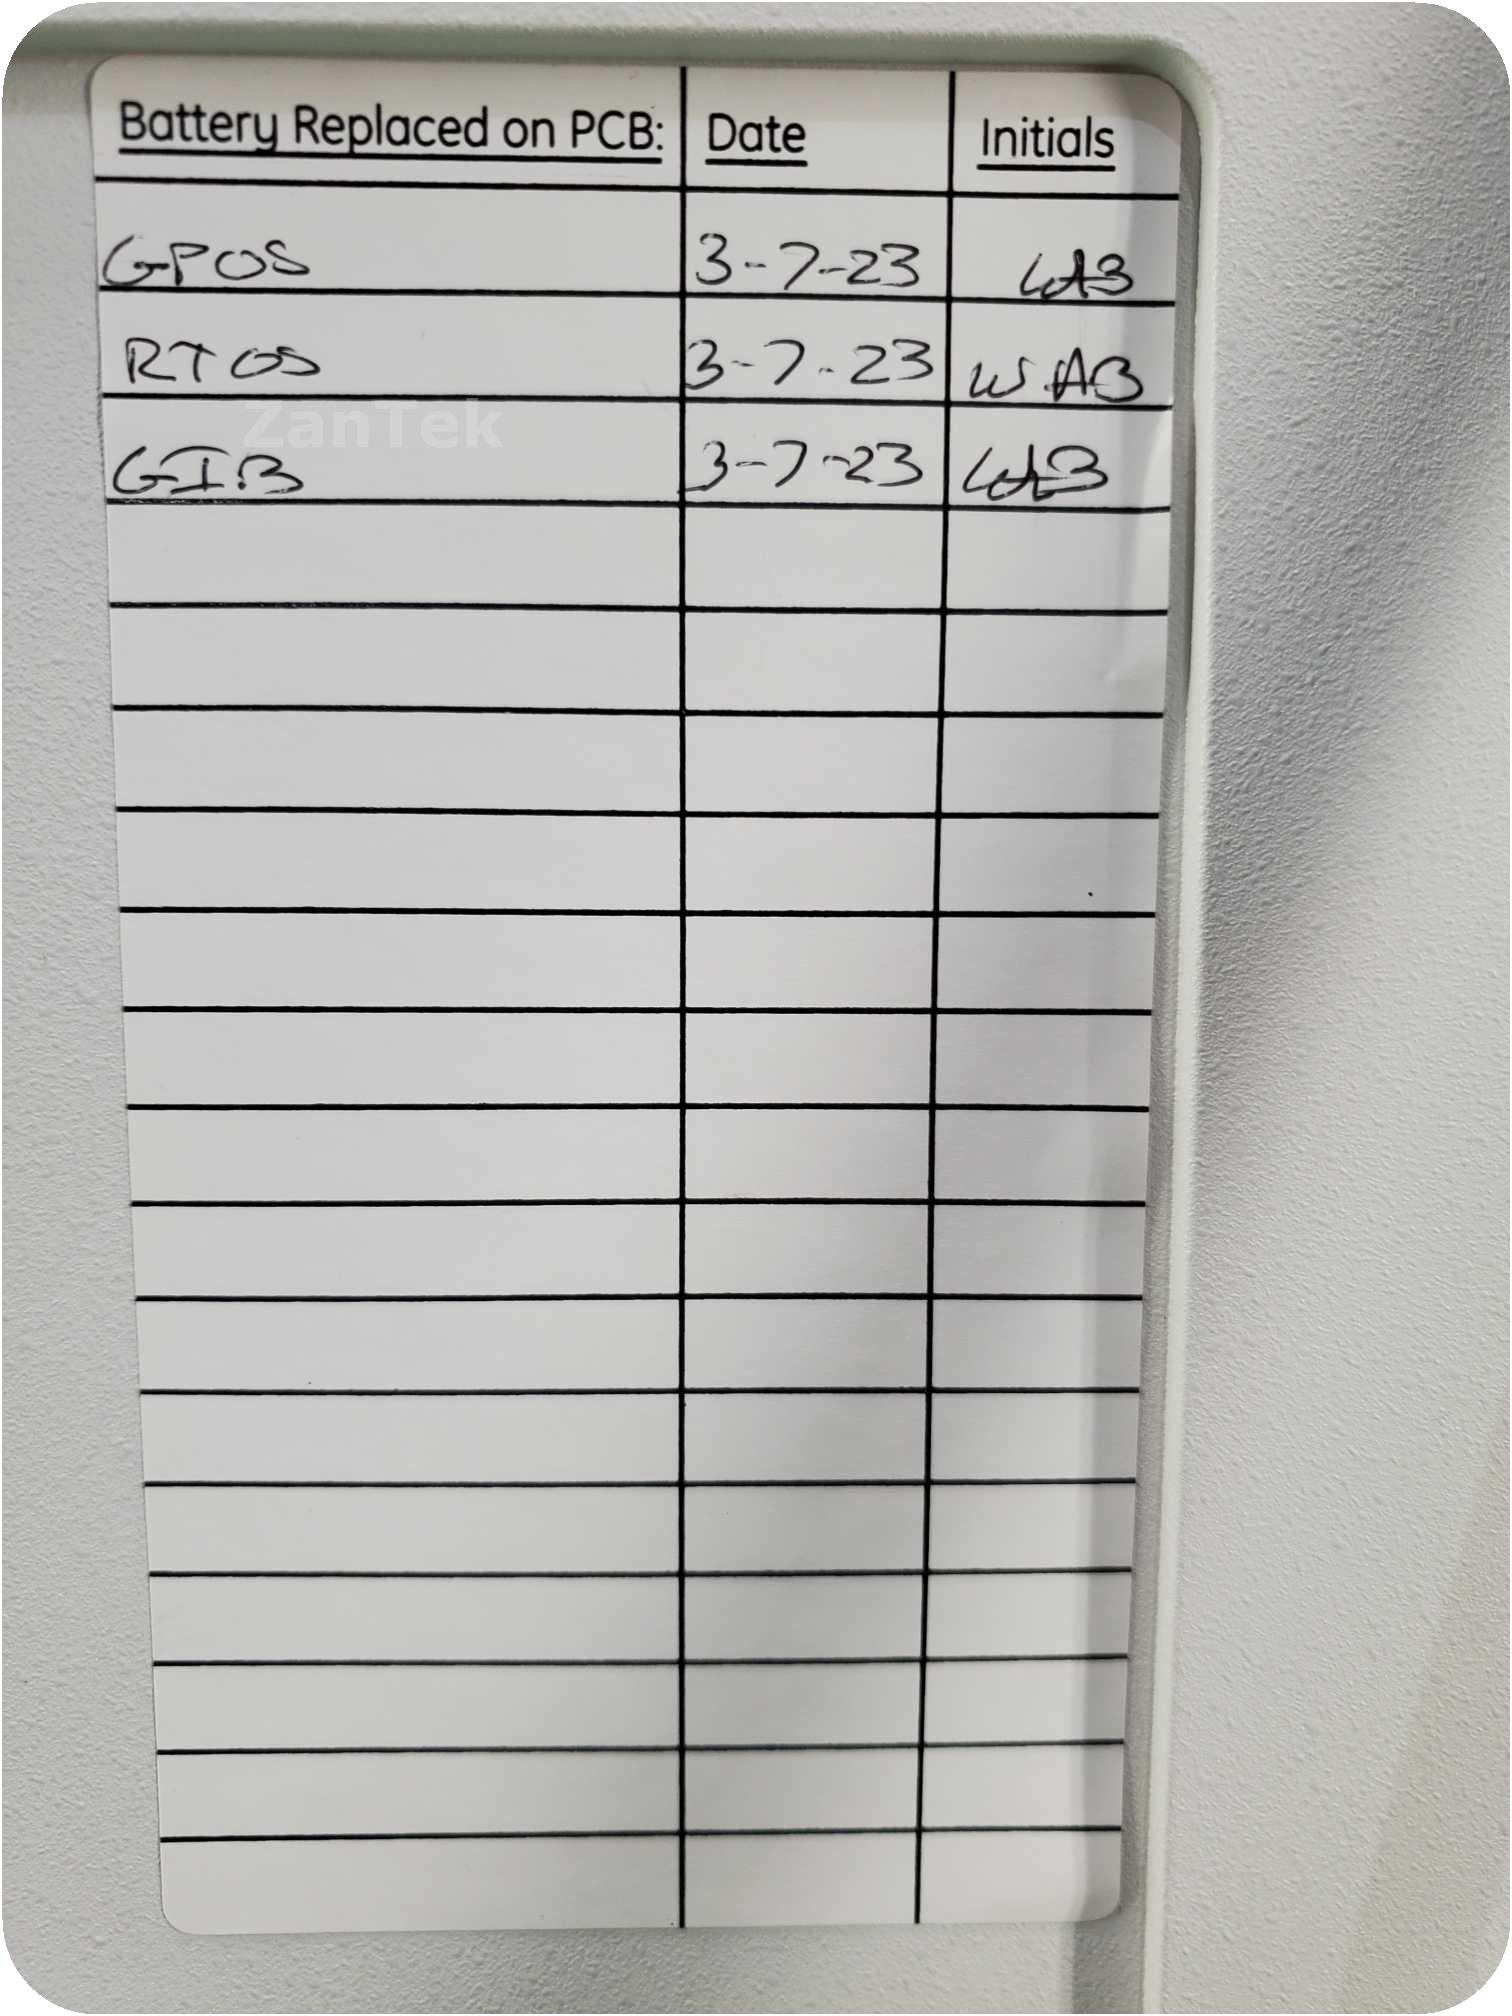 Battery Replaced on PCB: Date Initials
GPOS 3-7-23 WAB
RTOS 3-7-23 WAB
ZanTek
GIB 3-7-23 WAB